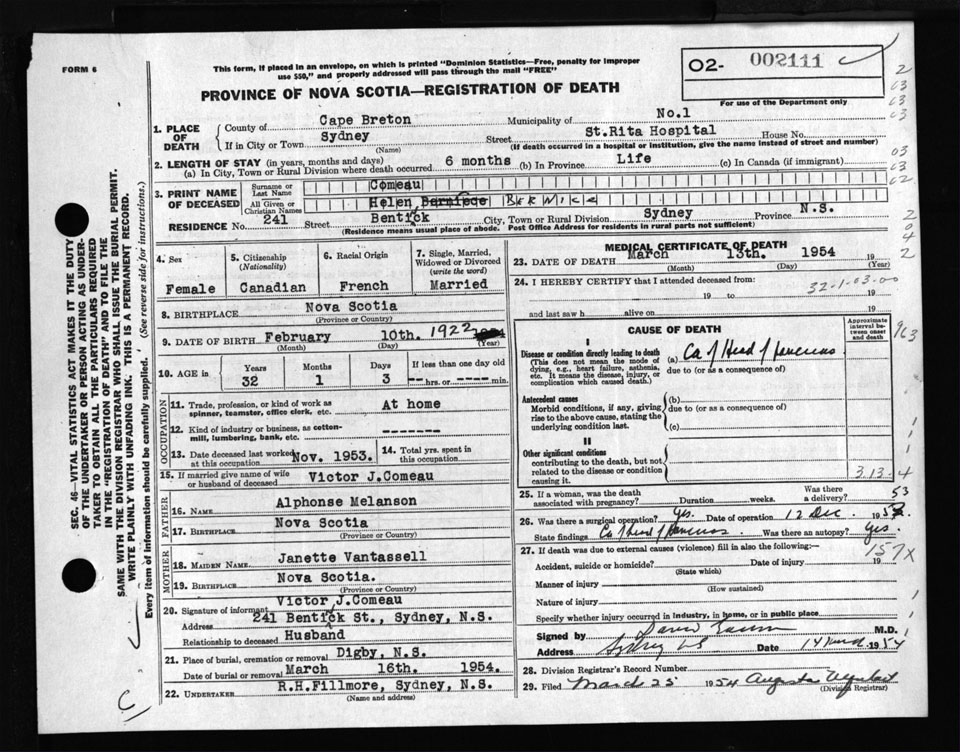 FORM 6
This form, if placed in an envelope, on which is printed "Dominion Statistics—Free, penalty for improper
use $50," and properly addressed will pass through the mail "FREE"
O2- 002111
For use of the Department only
PROVINCE OF NOVA SCOTIA—REGISTRATION OF DEATH
1. PLACE OF DEATH
County of Cape Breton Municipality of No.1
If in City or Town Sydney Street St.Rita Hospital House No.
(Name) (If death occurred in a hospital or institution, give the name instead of street and number)
2. LENGTH OF STAY (in years, months and days)
(a) In City, Town or Rural Division where death occurred 6 months (b) In Province Life (c) In Canada (if immigrant)
3. PRINT NAME OF DECEASED
Surname or Last Name Comeau
All Given or Christian Names Helen Berniece BERNICE
RESIDENCE No. 241 Street Bentick City, Town or Rural Division Sydney Province N.S.
(Residence means usual place of abode. Post Office Address for residents in rural parts not sufficient)
4. Sex Female
5. Citizenship (Nationality) Canadian
6. Racial Origin French
7. Single, Married, Widowed or Divorced (write the word) Married
8. BIRTHPLACE Nova Scotia
(Province or Country)
9. DATE OF BIRTH February 10th. 1922
(Month) (Day) (Year)
10. AGE in Years 32 Months 1 Days 3 If less than one day -- hrs. or ---- min.
OCCUPATION
11. Trade, profession, or kind of work as spinner, teamster, office clerk, etc. At home
12. Kind of industry or business, as cotton-mill, lumbering, bank, etc. -------
13. Date deceased last worked at this occupation Nov. 1953. 14. Total yrs. spent in this occupation
15. If married give name of wife or husband of deceased Victor J.Comeau
FATHER
16. NAME Alphonse Melanson
17. BIRTHPLACE Nova Scotia
(Province or Country)
MOTHER
18. MAIDEN NAME Janette Vantassell
19. BIRTHPLACE Nova Scotia.
(Province or Country)
20. Signature of informant Victor J.Comeau
Address 241 Bentick St., Sydney, N.S.
Relationship to deceased Husband
21. Place of burial, cremation or removal Digby, N.S.
Date of burial or removal March 16th. 1954.
22. UNDERTAKER R.H.Fillmore, Sydney, N.S.
(Name and address)
MEDICAL CERTIFICATE OF DEATH
23. DATE OF DEATH March 13th. 1954 19
(Month) (Day) (Year)
24. I HEREBY CERTIFY that I attended deceased from:
32-1-03-00
19 to 19
and last saw h alive on 19
CAUSE OF DEATH
Approximate interval between onset and death
I
Disease or condition directly leading to death
(This does not mean the mode of dying, e.g., heart failure, asthenia, etc. It means the disease, injury, or complication which caused death.)
(a) Ca of Head of Pancreas
due to (or as a consequence of)
Antecedent causes
Morbid conditions, if any, giving rise to the above cause, stating the underlying condition last.
(b)
due to (or as a consequence of)
(c)
II
Other significant conditions
contributing to the death, but not related to the disease or condition causing it.
3.13-4
25. If a woman, was the death associated with pregnancy? Duration weeks. Was there a delivery?
53
26. Was there a surgical operation? Yes. Date of operation 12 Dec. 1953
State findings Ca of head of Pancreas Was there an autopsy? Yes.
157X
27. If death was due to external causes (violence) fill in also the following:—
Accident, suicide or homicide? Date of injury 19
(State which)
Manner of injury
(How sustained)
Nature of injury
Specify whether injury occurred in industry, in home, or in public place
Signed by M.D.
Address Sydney NS Date 14 March 1954
28. Division Registrar's Record Number
29. Filed March 25 1954 Augusta Urquhart
(Division Registrar)
SEC. 46—VITAL STATISTICS ACT MAKES IT THE DUTY
OF THE UNDERTAKER OR PERSON ACTING AS UNDER-
TAKER TO OBTAIN ALL THE PARTICULARS REQUIRED
IN THE "REGISTRATION OF DEATH" AND TO FILE THE
SAME WITH THE DIVISION REGISTRAR WHO SHALL ISSUE THE BURIAL PERMIT.
WRITE PLAINLY WITH UNFADING INK. THIS IS A PERMANENT RECORD.
Every item of information should be carefully supplied. (See reverse side for instructions.)